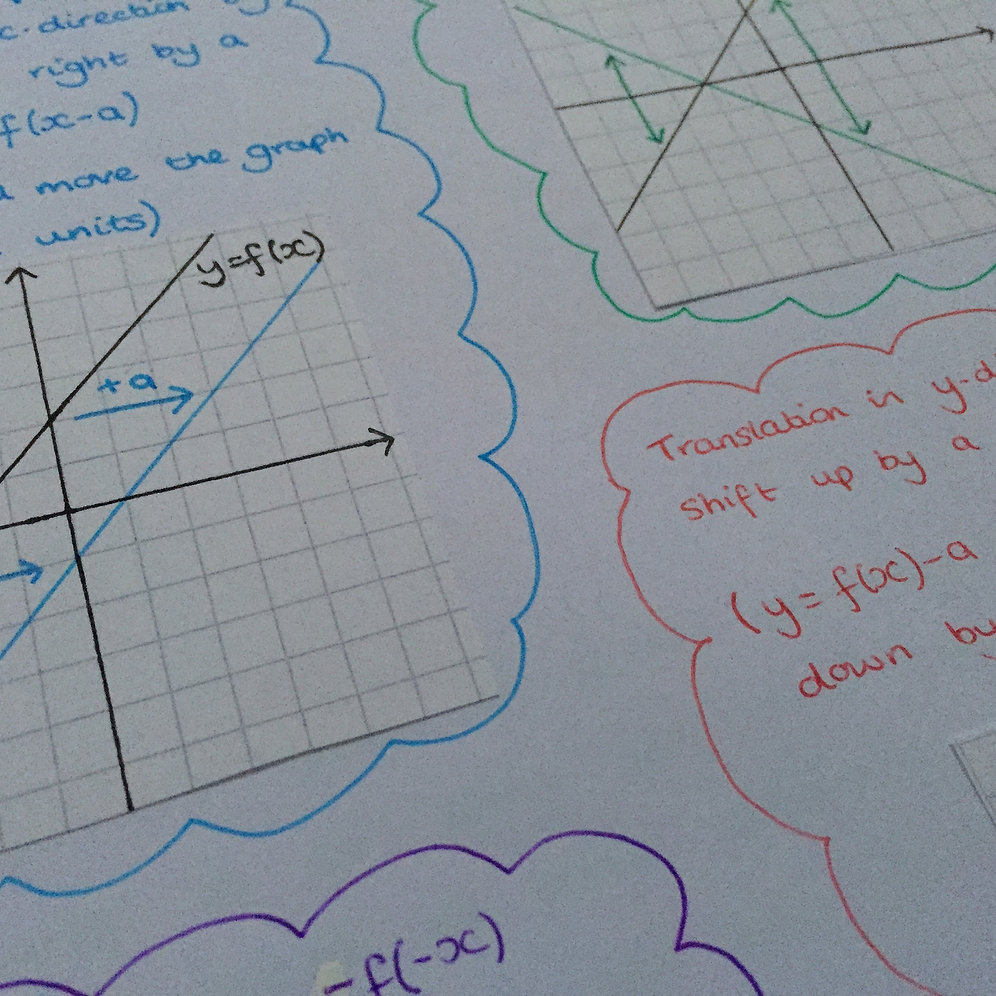 x-direction by
right by a
f(x-a)
move the graph
units)
y=f(x)
+a
Translation in y-d
shift up by a
(y=f(x)-a
down by
-f(-x)